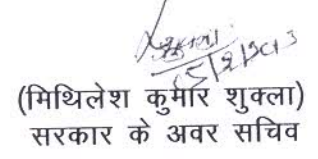 (मिथिलेश कुमार शुक्ला)
सरकार के अवर सचिव